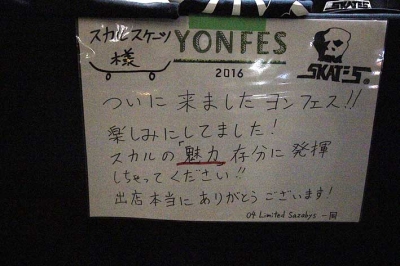 スカルスケーツ
様
YONFES
2016
SKATES
ついに 来ました ヨンフェス!!
楽しみにしてました!
スカルの「魅力」存分に 発揮
しちゃってください!!
出店本当に ありがとうございます!
04 Limited Sazabys 一同